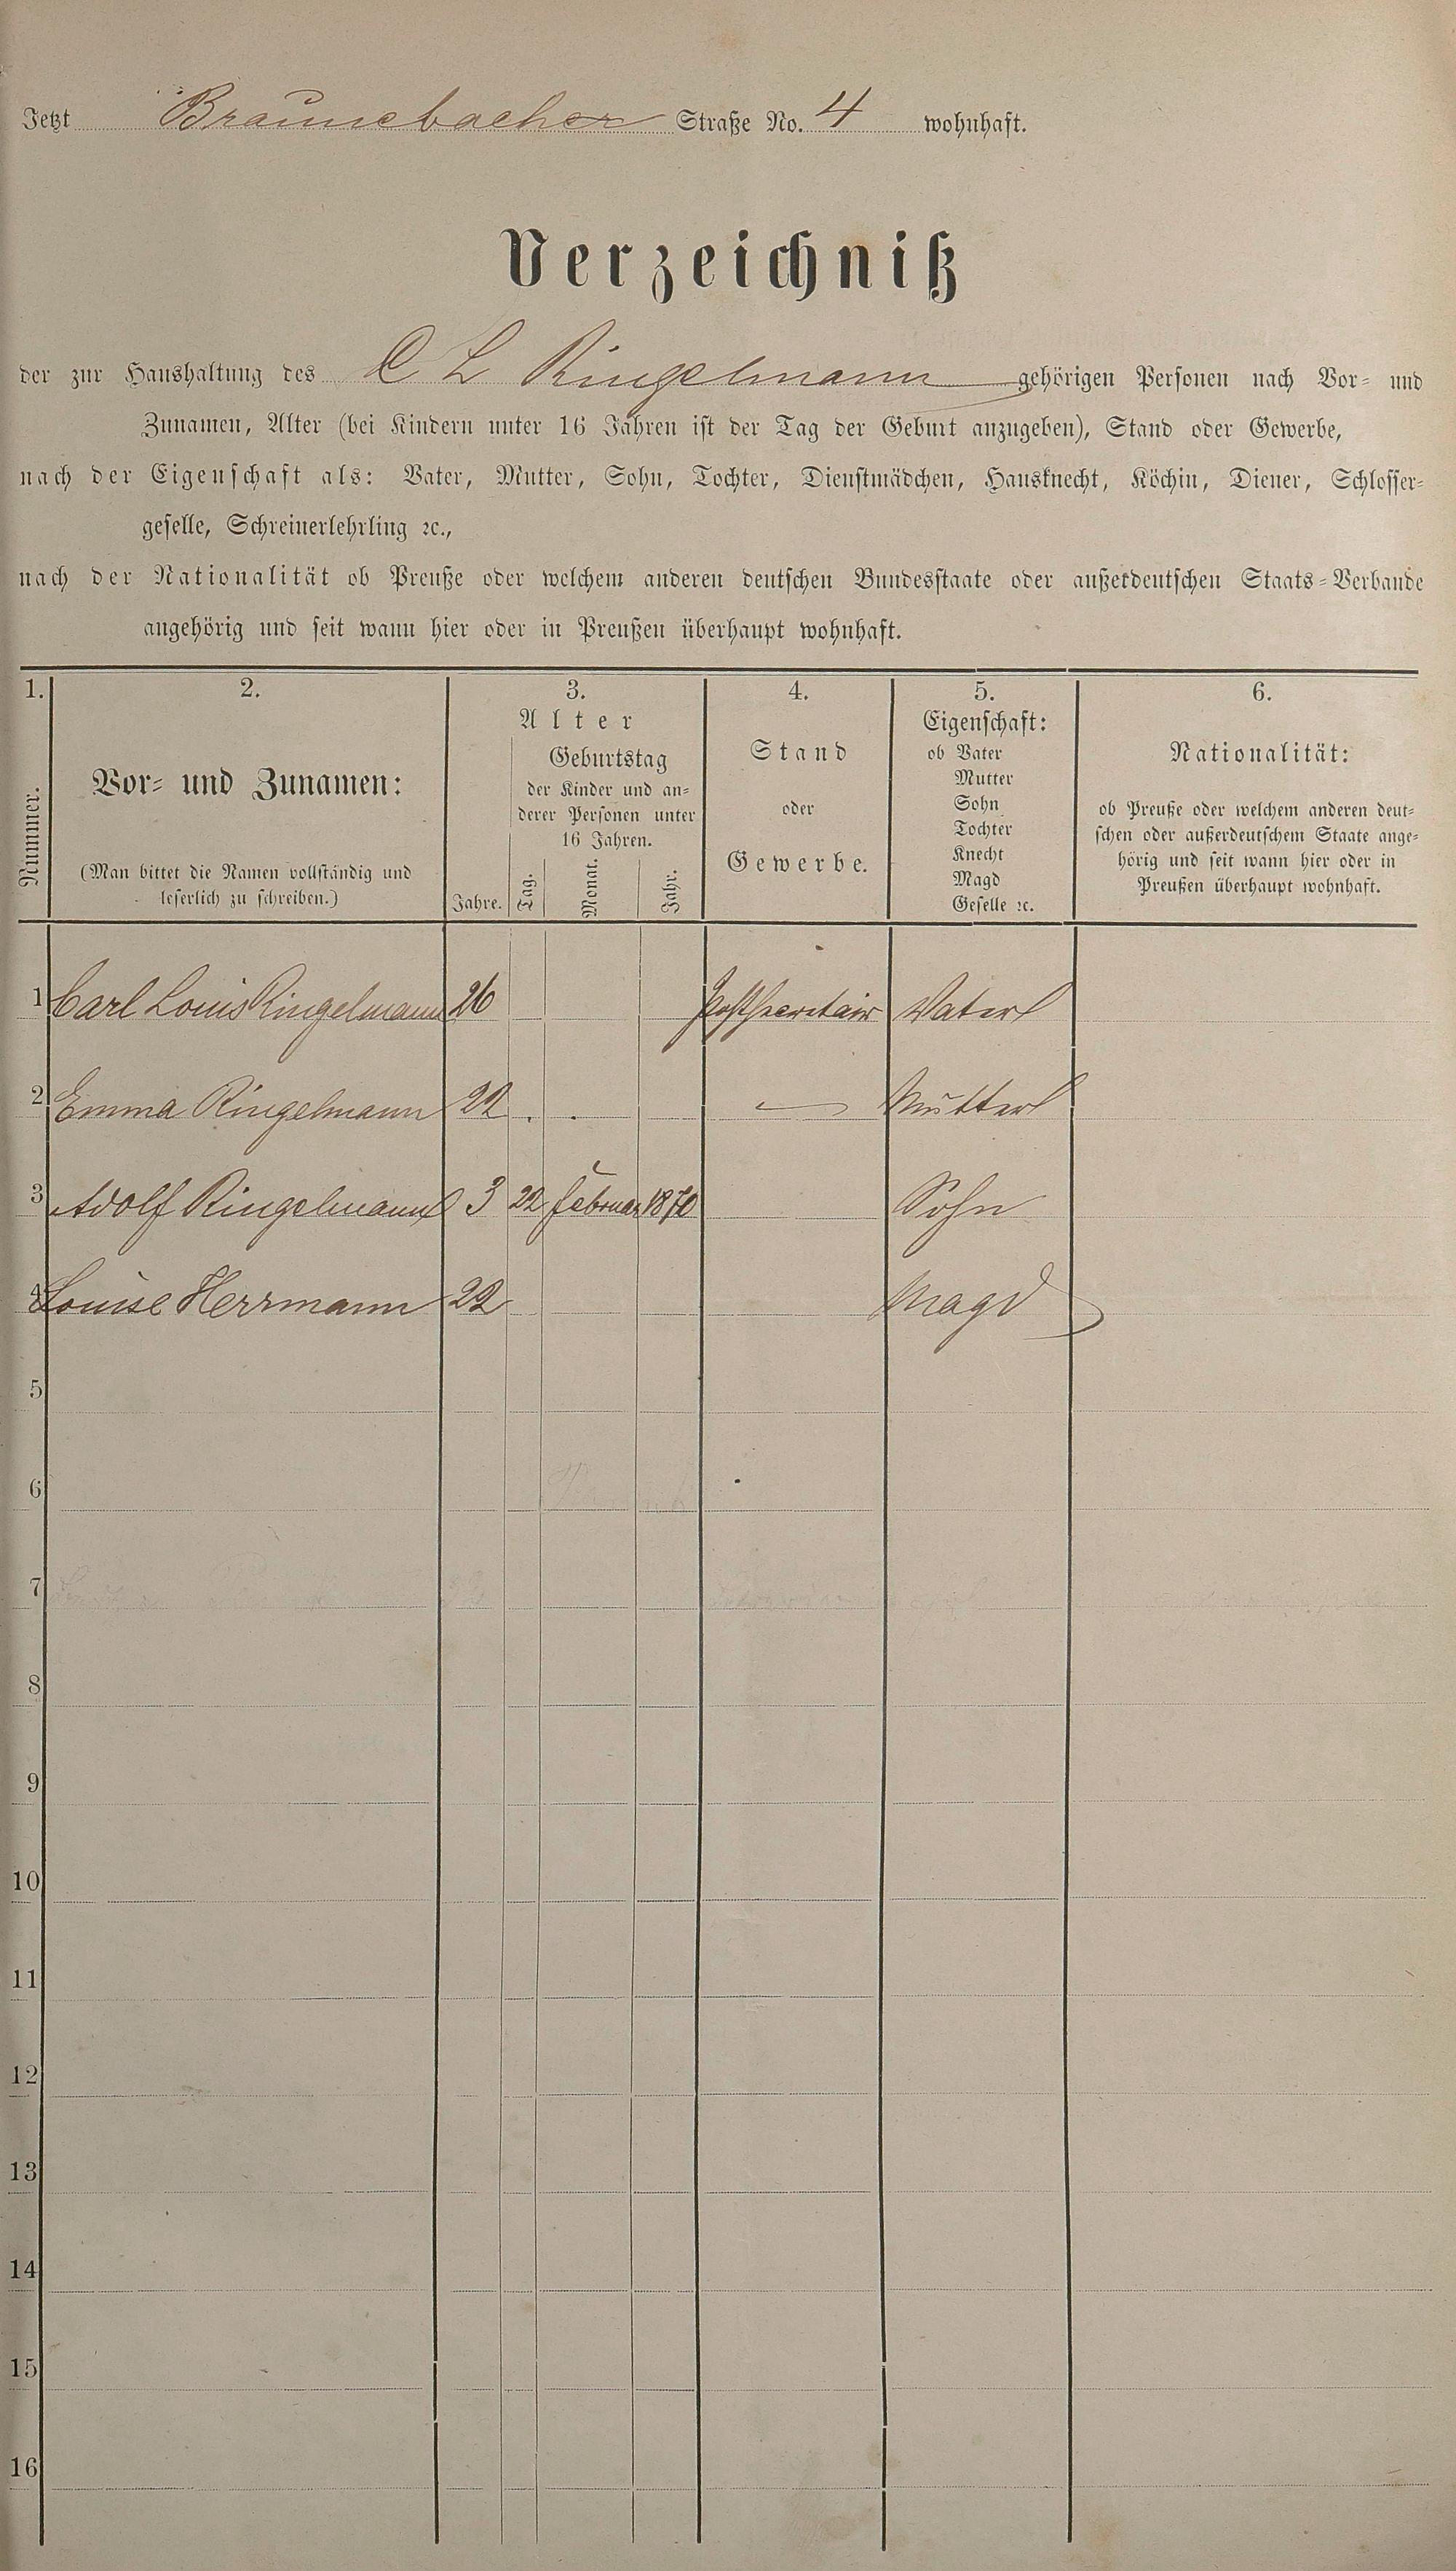 Jetzt Braunebacher Straße No. 4 wohnhaft.
Verzeichniß
der zur Haushaltung des C L Ringelmann gehörigen Personen nach Vor- und
Zunamen, Alter (bei Kindern unter 16 Jahren ist der Tag der Geburt anzugeben), Stand oder Gewerbe,
nach der Eigenschaft als: Vater, Mutter, Sohn, Tochter, Dienstmädchen, Hausknecht, Köchin, Diener, Schlosser-
geselle, Schreinerlehrling ꝛc.,
nach der Nationalität ob Preuße oder welchem anderen deutschen Bundesstaate oder außerdeutschen Staats-Verbande
angehörig und seit wann hier oder in Preußen überhaupt wohnhaft.
1.
Nummer.
2.
Vor- und Zunamen:
(Man bittet die Namen vollständig und
leserlich zu schreiben.)
3.
Alter
Jahre.
Geburtstag
der Kinder und an-
derer Personen unter
16 Jahren.
Tag. Monat. Jahr.
4.
Stand
oder
Gewerbe.
5.
Eigenschaft:
ob Vater
Mutter
Sohn
Tochter
Knecht
Magd
Geselle ꝛc.
6.
Nationalität:
ob Preuße oder welchem anderen deut-
schen oder außerdeutschem Staate ange-
hörig und seit wann hier oder in
Preußen überhaupt wohnhaft.
1 Carl Louis Ringelmann 26 Postsecretair Vater
2 Emma Ringelmann 22 — Mutter
3 Adolf Ringelmann 3 22 Februar 1870 Sohn
4 Louise Herrmann 22 Magd
5
6
7
8
9
10
11
12
13
14
15
16